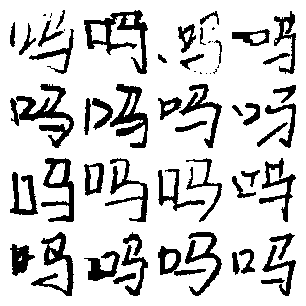 吗吗吗吗
吗吗吗吗
吗吗吗吗
吗吗吗吗